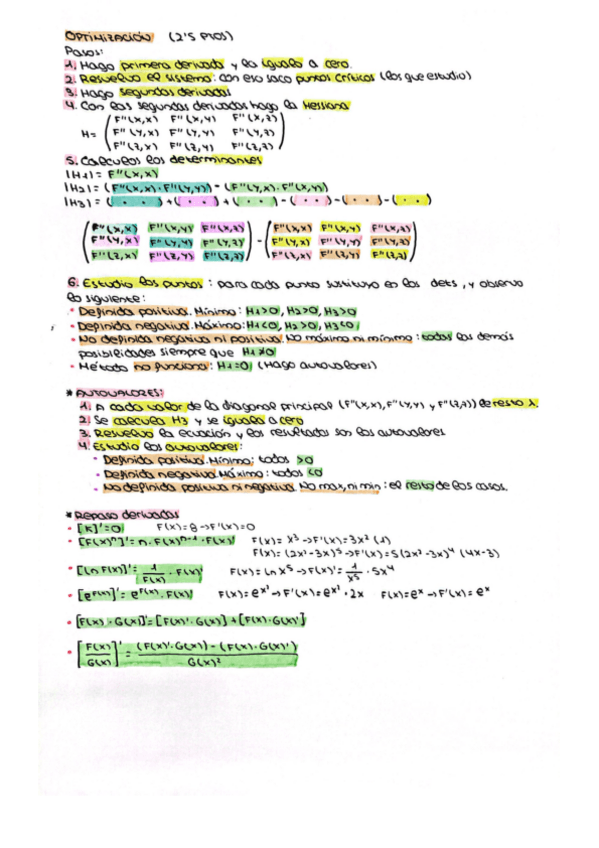 OPTIMIZACIÓN (2'5 PTOS)
Pasos:
1. Hago primera derivada y la igualo a cero.
2. Resuelvo el sistema: con eso saco puntos críticos (los que estudio)
3. Hago segundas derivadas
4. Con las segundas derivadas hago la Hessiana
F''(x,x) F''(x,y) F''(x,z)
H= F''(y,x) F''(y,y) F''(y,z)
F''(z,x) F''(z,y) F''(z,z)
5. Calculos los determinantes
|H1| = F''(x,x)
|H2| = (F''(x,x) · F''(y,y)) - (F''(y,x) · F''(x,y))
|H3| = (· · ·) + (· · ·) + (· · ·) - (· · ·) - (· · ·) - (· · ·)
F''(x,x) F''(x,y) F''(x,z) - F''(x,x) F''(x,y) F''(x,z)
F''(y,x) F''(y,y) F''(y,z) F''(y,x) F''(y,y) F''(y,z)
F''(z,x) F''(z,y) F''(z,z) F''(z,x) F''(z,y) F''(z,z)
6. Estudio los puntos: para cada punto sustituyo en los dets, y observo
lo siguiente:
• Definida positiva. Mínimo: H1>0, H2>0, H3>0
• Definida negativa. Máximo: H1<0, H2>0, H3<0
• No definida negativa ni positiva. No máximo ni mínimo: todas las demás
posibilidades siempre que H1≠0
• Método no funciona: H1=0 (Hago autovalores)
* AUTOVALORES:
1. A cada valor de la diagonal principal (F''(x,x), F''(y,y) y F''(z,z)) le resto λ.
2. Se calcula H3 y se iguala a cero
3. Resuelvo la ecuación y los resultados son los autovalores
4. Estudio los autovalores:
• Definida positiva. Mínimo: todos >0
• Definida negativa. Máximo: todos <0
• No definida positiva ni negativa. No max, ni min: el resto de los casos.
* Repaso derivadas
• [K]'=0 F(x)=8→F'(x)=0
• [F(x)ⁿ]'= n·F(x)ⁿ⁻¹·F(x)' F(x)= x³→F'(x)=3x²(1)
F(x)= (2x²-3x)⁵→F'(x)=5(2x²-3x)⁴ (4x-3)
• [ln F(x)]'= 1/F(x) · F(x)' F(x)= ln x⁵→F(x)'= 1/x⁵ · 5x⁴
• [e^F(x)]'= e^F(x)·F(x)' F(x)=e^x²→F'(x)=e^x²·2x F(x)=e^x→F'(x)=e^x
• [F(x)·G(x)]'=[F(x)'·G(x)]+[F(x)·G(x)']
• [F(x)/G(x)]' = (F(x)'·G(x))-(F(x)·G(x)')/G(x)²